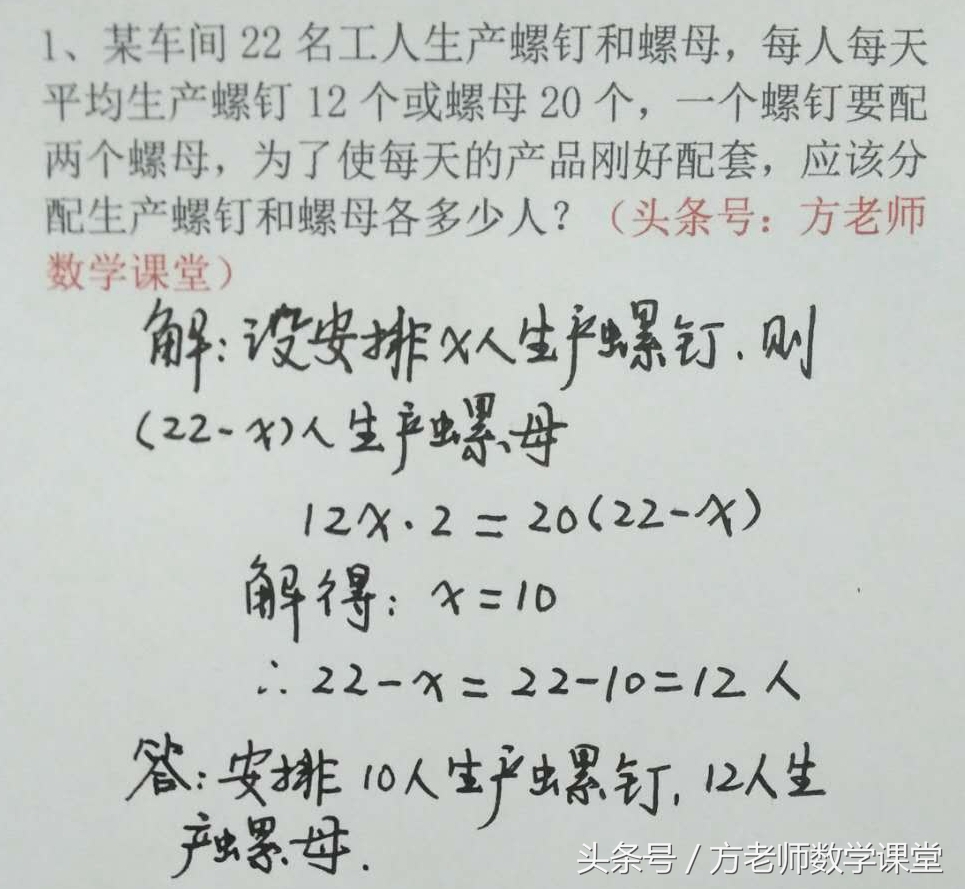 1、某车间 22 名工人生产螺钉和螺母，每人每天
平均生产螺钉 12 个或螺母 20 个，一个螺钉要配
两个螺母，为了使每天的产品刚好配套，应该分
配生产螺钉和螺母各多少人？（头条号：方老师
数学课堂）
解：设安排x人生产螺钉，则
(22-x)人生产螺母
12x·2=20(22-x)
解得：x=10
∴22-x=22-10=12人
答：安排10人生产螺钉，12人生
产螺母.
头条号 / 方老师数学课堂